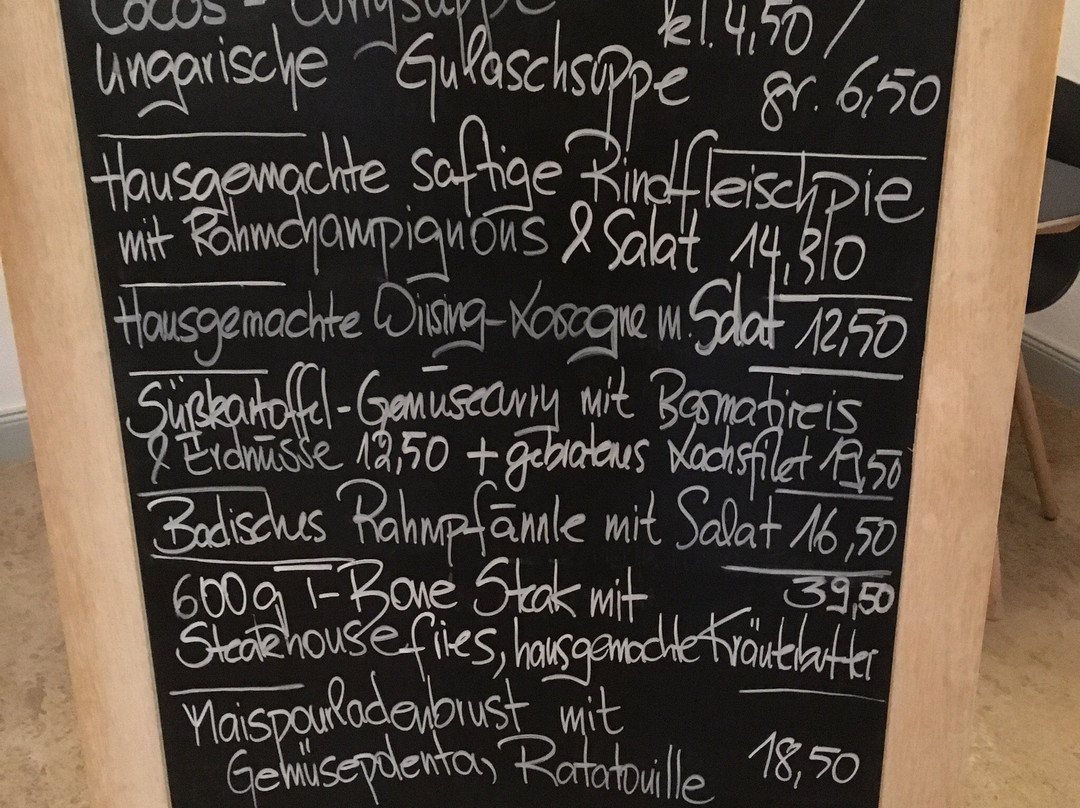 Cocos - Currysuppe kl. 4,50 /
Ungarische Gulaschsuppe gr. 6,50
Hausgemachte saftige Rindfleischpie
mit Rahmchampignons & Salat 14,
Hausgemachte Wirsing-Lasagne m. Salat 12,50
Süßkartoffel-Gemüsecurry mit Basmatireis
& Erdnüsse 12,50 + gebratenes Lachsfilet 19,50
Badisches Rahmpfännle mit Salat 16,50
600g T-Bone Steak mit 39,50
Steakhousefries, hausgemachte Kräuterbutter
Maispoulardenbrust mit
Gemüsepolenta, Ratatouille 18,50